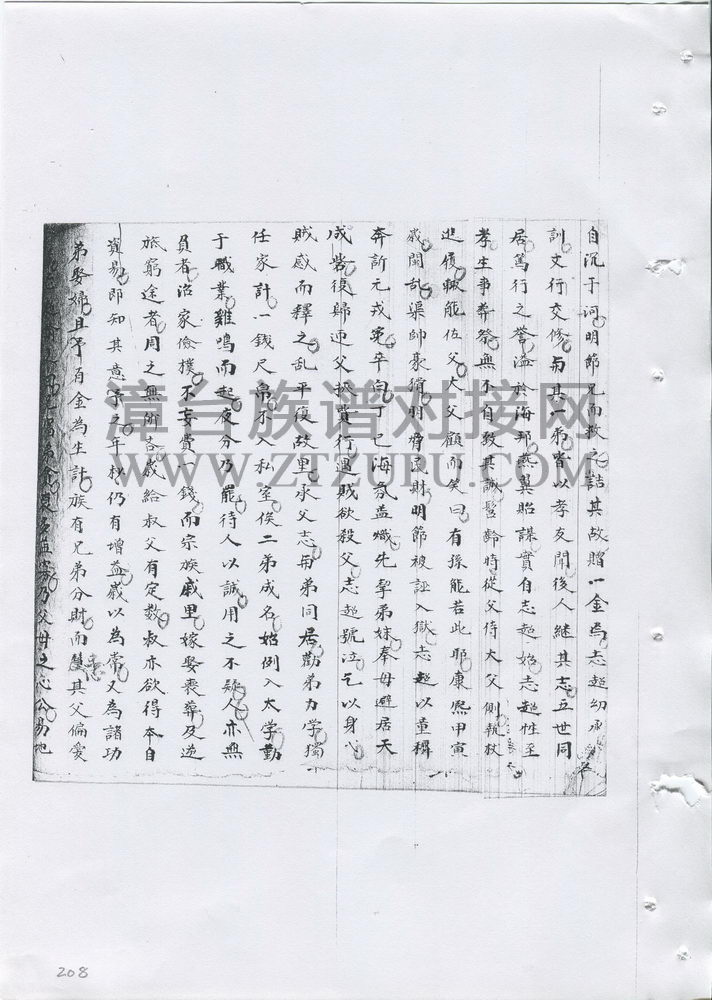 自沉于河明節見而救之詰其故贈一金為志超幼承
訓文行交修與其一弟皆以孝友聞後人継其志五世同
居篤行之誉溢於海邦燕翼貽謀實自志超始志超性至
孝生事葬祭無不自致其誠髫齡時從父侍大父側執杖
進履輒能佐父大父顧而笑曰有孫能若此耶康熈甲寅
歲閩乱渠帥豪猾明脅良財明節被誣入獄志超以童穉
奔訴元戎冤卒白丁巳海氛益熾先挈弟妹奉母避居天
成砦復歸迎父挾貲行遇賊欲殺父志超號泣乞以身
賊感而釋之乱平復故里承父志與弟同居勸弟力学獨
任家計一錢尺帛不入私室俟二弟成名始例入太学勤
于職業雞鳴而起夜分乃罷待人以誠用之不疑人亦無
負者治家儉樸不妄費一錢而宗族戚里嫁娶喪葬及逆
旅窮途者周之無所吝歲給叔父有定数叔亦欲得本自
貿易即知其意予之年权仍有增益歲以為常又為諸功
弟娶婦且予百金為生計族有兄弟分財而其父偏爱
乃父母之心公易地
漳台族谱对接网
WWW.ZTZUPU.COM
208